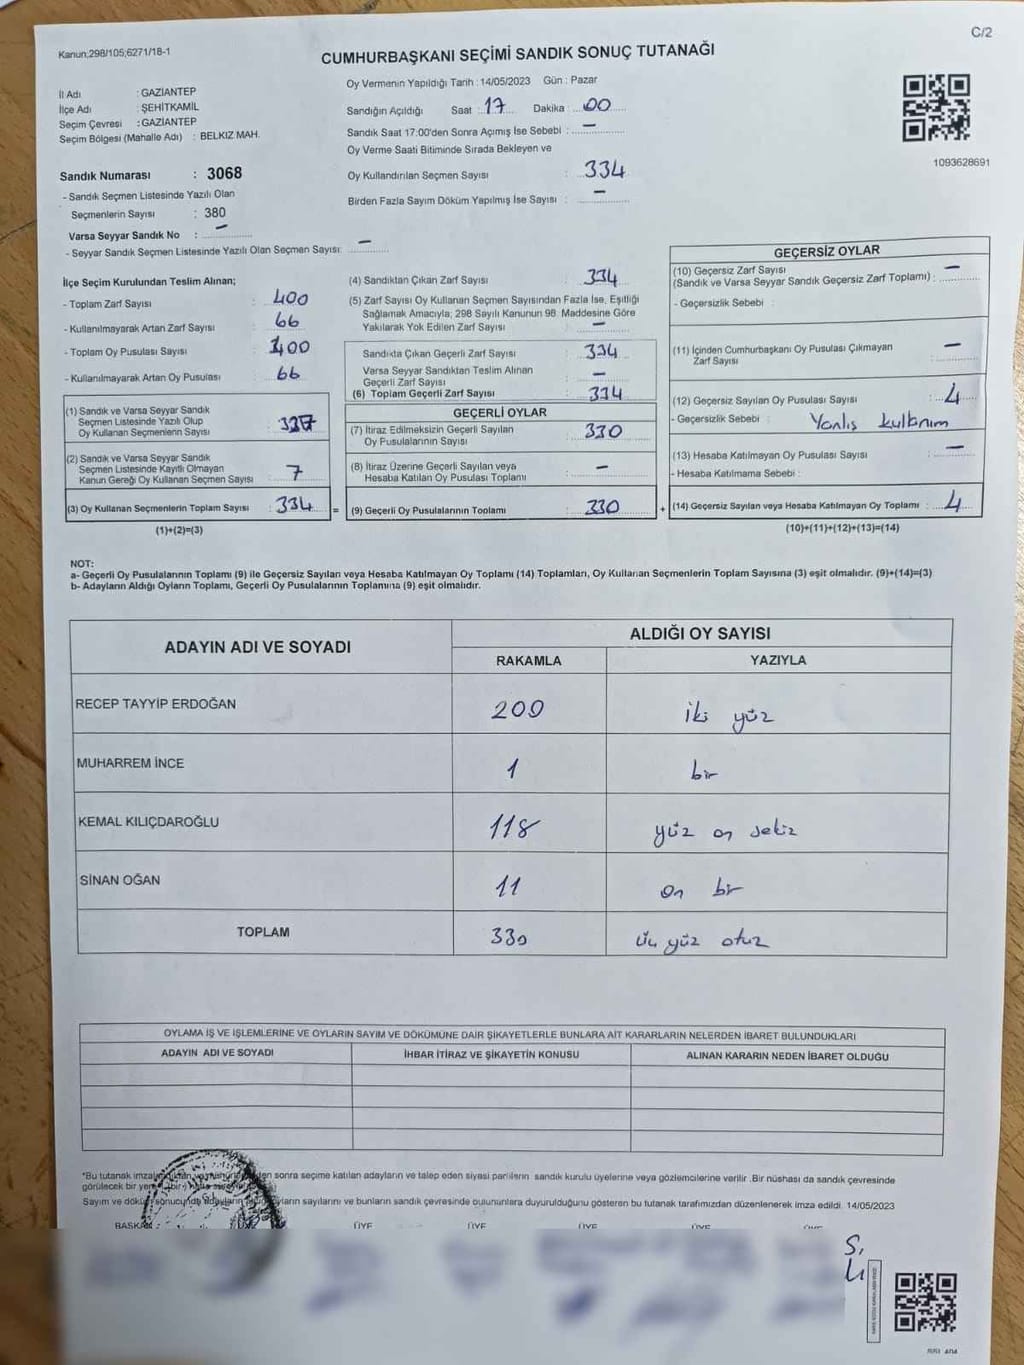 Kanun;298/105;6271/18-1
C/2
CUMHURBAŞKANI SEÇİMİ SANDIK SONUÇ TUTANAĞI
İl Adı : GAZİANTEP
İlçe Adı : ŞEHİTKAMİL
Seçim Çevresi : GAZİANTEP
Seçim Bölgesi (Mahalle Adı) : BELKIZ MAH.
Oy Vermenin Yapıldığı Tarih : 14/05/2023 Gün : Pazar
Sandığın Açıldığı Saat : 17 Dakika : 00
Sandık Saat 17:00'den Sonra Açımış İse Sebebi : —
Oy Verme Saati Bitiminde Sırada Bekleyen ve
Oy Kullandırılan Seçmen Sayısı : 334
Birden Fazla Sayım Döküm Yapılmış İse Sayısı : —
1093628691
Sandık Numarası : 3068
- Sandık Seçmen Listesinde Yazılı Olan
Seçmenlerin Sayısı : 380
Varsa Seyyar Sandık No : —
- Seyyar Sandık Seçmen Listesinde Yazılı Olan Seçmen Sayısı: —
İlçe Seçim Kurulundan Teslim Alınan;
- Toplam Zarf Sayısı : 400
- Kullanılmayarak Artan Zarf Sayısı : 66
- Toplam Oy Pusulası Sayısı : 400
- Kullanılmayarak Artan Oy Pusulası : 66
(1) Sandık ve Varsa Seyyar Sandık
Seçmen Listesinde Yazılı Olup
Oy Kullanan Seçmenlerin Sayısı :
(2) Sandık ve Varsa Seyyar Sandık
Seçmen Listesinde Kayıtlı Olmayan
Kanun Gereği Oy Kullanan Seçmen Sayısı : 7
(3) Oy Kullanan Seçmenlerin Toplam Sayısı : 334 =
(1)+(2)=(3)
(4) Sandıktan Çıkan Zarf Sayısı : 334
(5) Zarf Sayısı Oy Kullanan Seçmen Sayısından Fazla İse, Eşitliği
Sağlamak Amacıyla; 298 Sayılı Kanunun 98. Maddesine Göre
Yakılarak Yok Edilen Zarf Sayısı : —
Sandıkta Çıkan Geçerli Zarf Sayısı : 334
Varsa Seyyar Sandıktan Teslim Alınan
Geçerli Zarf Sayısı : —
(6) Toplam Geçerli Zarf Sayısı : 334
GEÇERLİ OYLAR
(7) İtiraz Edilmeksizin Geçerli Sayılan
Oy Pusulalarının Sayısı : 330
(8) İtiraz Üzerine Geçerli Sayılan veya
Hesaba Katılan Oy Pusulaları Toplamı : —
(9) Geçerli Oy Pusulalarının Toplamı : 330 +
GEÇERSİZ OYLAR
(10) Geçersiz Zarf Sayısı
(Sandık ve Varsa Seyyar Sandık Geçersiz Zarf Toplamı) : —
- Geçersizlik Sebebi :
(11) İçinden Cumhurbaşkanı Oy Pusulası Çıkmayan
Zarf Sayısı : —
(12) Geçersiz Sayılan Oy Pusulası Sayısı : 4
- Geçersizlik Sebebi : Yanlış kullanım
(13) Hesaba Katılmayan Oy Pusulası Sayısı : —
- Hesaba Katılmama Sebebi :
(14) Geçersiz Sayılan veya Hesaba Katılmayan Oy Toplamı : 4
(10)+(11)+(12)+(13)=(14)
NOT:
a- Geçerli Oy Pusulalarının Toplamı (9) ile Geçersiz Sayılan veya Hesaba Katılmayan Oy Toplamı (14) Toplamları, Oy Kullanan Seçmenlerin Toplam Sayısına (3) eşit olmalıdır. (9)+(14)=(3)
b- Adayların Aldığı Oyların Toplamı, Geçerli Oy Pusulalarının Toplamına (9) eşit olmalıdır.
ADAYIN ADI VE SOYADI
ALDIĞI OY SAYISI
RAKAMLA YAZIYLA
RECEP TAYYİP ERDOĞAN 200 iki yüz
MUHARREM İNCE 1 bir
KEMAL KILIÇDAROĞLU 118 yüz on sekiz
SİNAN OĞAN 11 on bir
TOPLAM 330 üç yüz otuz
OYLAMA İŞ VE İŞLEMLERİNE VE OYLARIN SAYIM VE DÖKÜMÜNE DAİR ŞİKAYETLERLE BUNLARA AİT KARARLARIN NELERDEN İBARET BULUNDUKLARI
ADAYIN ADI VE SOYADI İHBAR İTİRAZ VE ŞİKAYETİN KONUSU ALINAN KARARIN NEDEN İBARET OLDUĞU
*Bu tutanak sonra seçime katılan adayların ve talep eden siyasi partilerin sandık kurulu üyelerine veya gözlemcilerine verilir .Bir nüshası da sandık çevresinde
görülecek bir
Sayım ve döküm sonucunda sayılarını ve bunların sandık çevresinde bulunanlara duyurulduğunu gösteren bu tutanak tarafımızdan düzenlenerek imza edildi. 14/05/2023
BAŞKAN ÜYE ÜYE ÜYE ÜYE